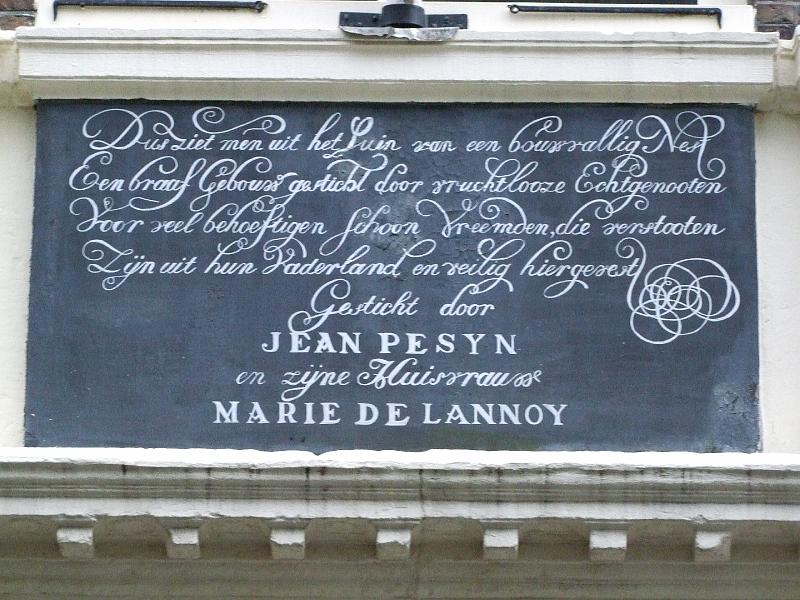 Dus ziet men uit het Puin van een bouwvallig Nest
Een braaf Gebouw gesticht door vruchtlooze Echtgenooten
Voor veel behoeftigen schoon Vreemden, die verstooten
Zijn uit hun Vaderland en veilig hier gevest
Gesticht door
JEAN PESYN
en zijne Huisvrauw
MARIE DE LANNOY